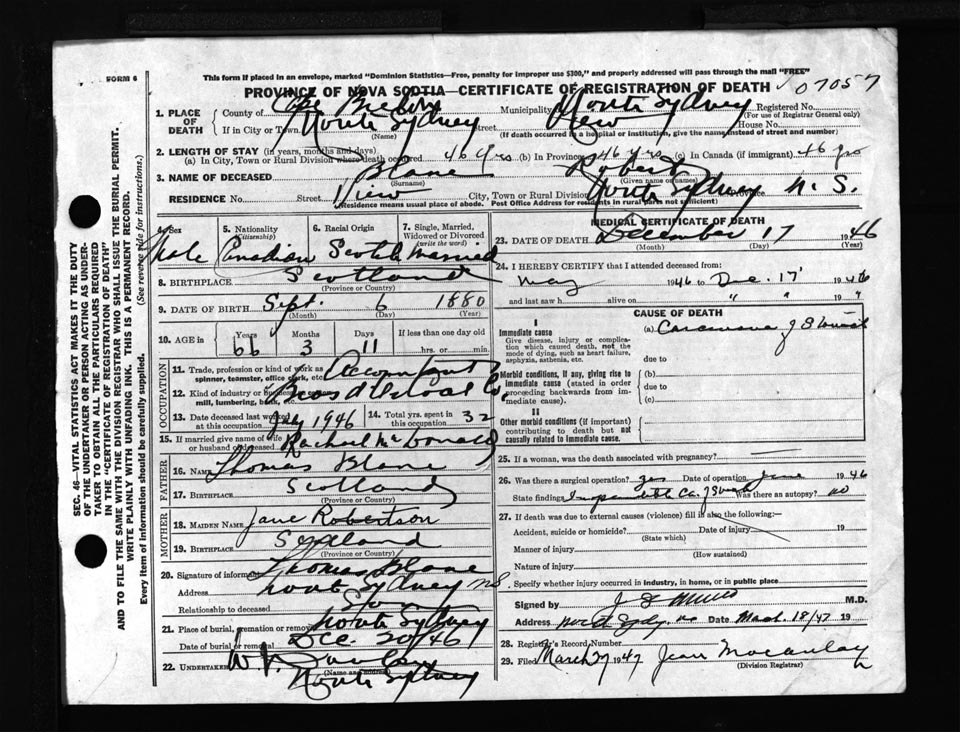 FORM 6
This form if placed in an envelope, marked "Dominion Statistics—Free, penalty for improper use $300," and properly addressed will pass through the mail "FREE"
PROVINCE OF NOVA SCOTIA—CERTIFICATE OF REGISTRATION OF DEATH 07057
1. PLACE OF DEATH County of Cape Breton Municipality North Sydney Registered No.
(For use of Registrar General only)
If in City or Town North Sydney Street View House No.
(Name) (If death occurred in a hospital or institution, give the name instead of street and number)
2. LENGTH OF STAY (in years, months and days)
(a) In City, Town or Rural Division where death occurred 46 yrs (b) In Province 46 yrs (c) In Canada (if immigrant) 46 yrs
3. NAME OF DECEASED Blane Robert
(Surname) (Given name or names)
RESIDENCE No. Street View City, Town or Rural Division North Sydney N. S.
(Residence means usual place of abode. Post Office Address for residents in rural parts not sufficient)
4. Sex 5. Nationality (Citizenship) 6. Racial Origin 7. Single, Married, Widowed or Divorced (write the word)
Male Canadian Scotch Married
8. BIRTHPLACE Scotland
(Province or Country)
9. DATE OF BIRTH Sept. 6 1880
(Month) (Day) (Year)
10. AGE in Years Months Days If less than one day
66 3 11 hrs. or min.
OCCUPATION
11. Trade, profession or kind of work as spinner, teamster, office clerk, etc. Accountant
12. Kind of industry or business, mill, lumbering, bank, etc.
13. Date deceased last worked at this occupation July 1946 14. Total yrs. spent in this occupation 32
15. If married give name of wife or husband of deceased Rachael McDonald
FATHER
16. NAME Thomas Blane
17. BIRTHPLACE Scotland
MOTHER
18. MAIDEN NAME Jane Robertson
19. BIRTHPLACE Scotland
(Province or Country)
20. Signature of informant Thomas Blane
Address North Sydney N.S.
Relationship to deceased Son
21. Place of burial, cremation or removal North Sydney
Date of burial or removal Dec. 20/46
22. UNDERTAKER
(Name and address)
North Sydney
MEDICAL CERTIFICATE OF DEATH
23. DATE OF DEATH December 17 1946
(Month) (Day) (Year)
24. I HEREBY CERTIFY that I attended deceased from:
May 1946 to Dec. 17 1946
and last saw h alive on " " 19 "
CAUSE OF DEATH
I
Immediate cause
Give disease, injury or complication which caused death, not the mode of dying, such as heart failure, asphyxia, asthenia, etc.
(a) Carcinoma of Stomach
due to
Morbid conditions, if any, giving rise to immediate cause (stated in order proceeding backwards from immediate cause).
(b)
due to
(c)
II
Other morbid conditions (if important) contributing to death but not causally related to immediate cause.
25. If a woman, was the death associated with pregnancy?
26. Was there a surgical operation? yes Date of operation June 1946
State findings Inoperable Ca. of Stomach Was there an autopsy? no
27. If death was due to external causes (violence) fill in also the following:—
Accident, suicide or homicide? Date of injury 19
(State which)
Manner of injury
(How sustained)
Nature of injury
Specify whether injury occurred in industry, in home, or in public place
Signed by M.D.
Address North Sydney, NS Date March 18/47 19
28. Registrar's Record Number
29. Filed March 27 1947 Jean Macaulay
(Division Registrar)
SEC. 46—VITAL STATISTICS ACT MAKES IT THE DUTY
OF THE UNDERTAKER OR PERSON ACTING AS UNDER-
TAKER TO OBTAIN ALL THE PARTICULARS REQUIRED
IN THE "CERTIFICATE OF REGISTRATION OF DEATH"
AND TO FILE THE SAME WITH THE DIVISION REGISTRAR WHO SHALL ISSUE THE BURIAL PERMIT.
WRITE PLAINLY WITH UNFADING INK. THIS IS A PERMANENT RECORD.
Every item of information should be carefully supplied. (See reverse side for instructions.)